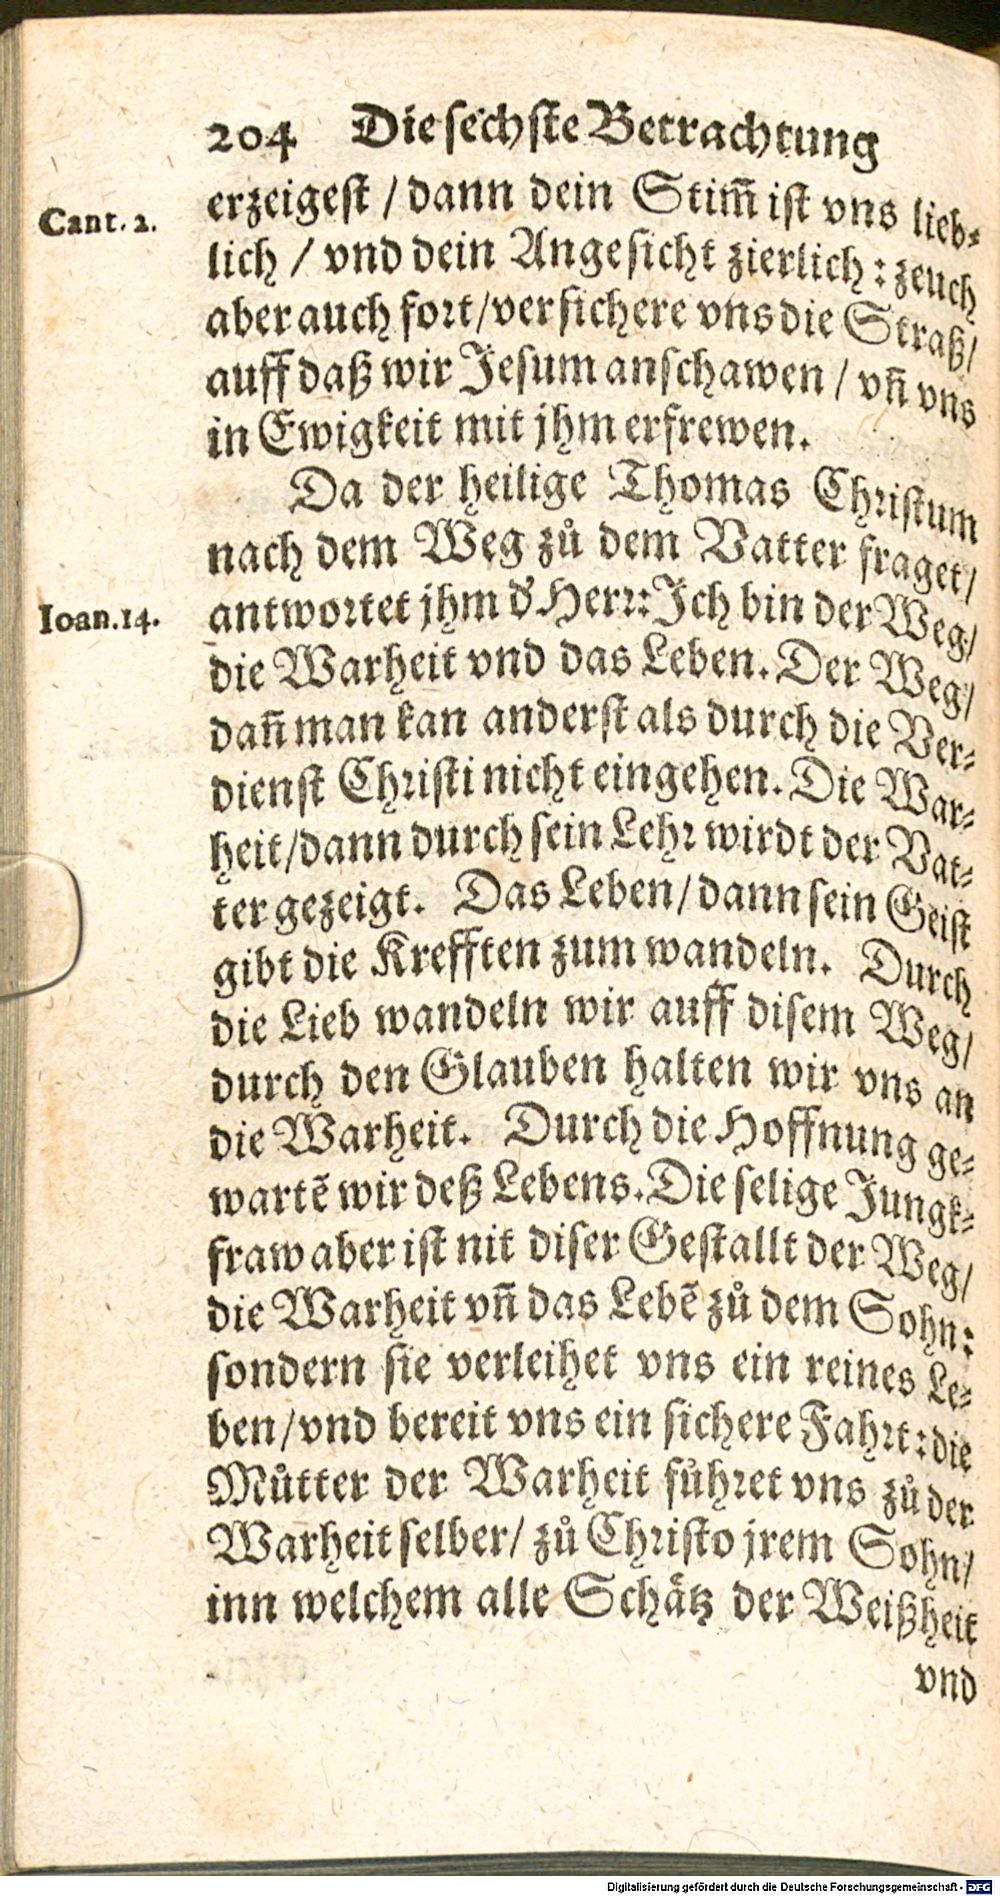 204 Die sechste Betrachtung
Cant. 2.
erzeigest / dann dein Stim̃ ist vns lieb-
lich / vnd dein Angesicht zierlich : zeuch
aber auch fort/versichere vns die Straß/
auff daß wir Jesum anschawen / vñ vns
in Ewigkeit mit jhm erfrewen.
Da der heilige Thomas Christum
nach dem Weg zů dem Vatter fraget/
Ioan.14.
antwortet jhm d' Herr: Ich bin der Weg/
die Warheit vnd das Leben. Der Weg/
dañ man kan anderst als durch die Ver-
dienst Christi nicht eingehen. Die War-
heit/dann durch sein Lehr wirdt der Vat-
ter gezeigt. Das Leben/dann sein Geist
gibt die Krefften zum wandeln. Durch
die Lieb wandeln wir auff disem Weg/
durch den Glauben halten wir vns an
die Warheit. Durch die Hoffnung ge-
wartẽ wir deß Lebens. Die selige Jungk-
fraw aber ist nit diser Gestallt der Weg/
die Warheit vñ das Lebẽ zů dem Sohn:
sondern sie verleihet vns ein reines Le-
ben/vnd bereit vns ein sichere Fahrt: die
Můtter der Warheit fůhret vns zů der
Warheit selber/ zů Christo jrem Sohn/
inn welchem alle Schåtz der Weißheit
vnd
Digitalisierung gefördert durch die Deutsche Forschungsgemeinschaft - DFG